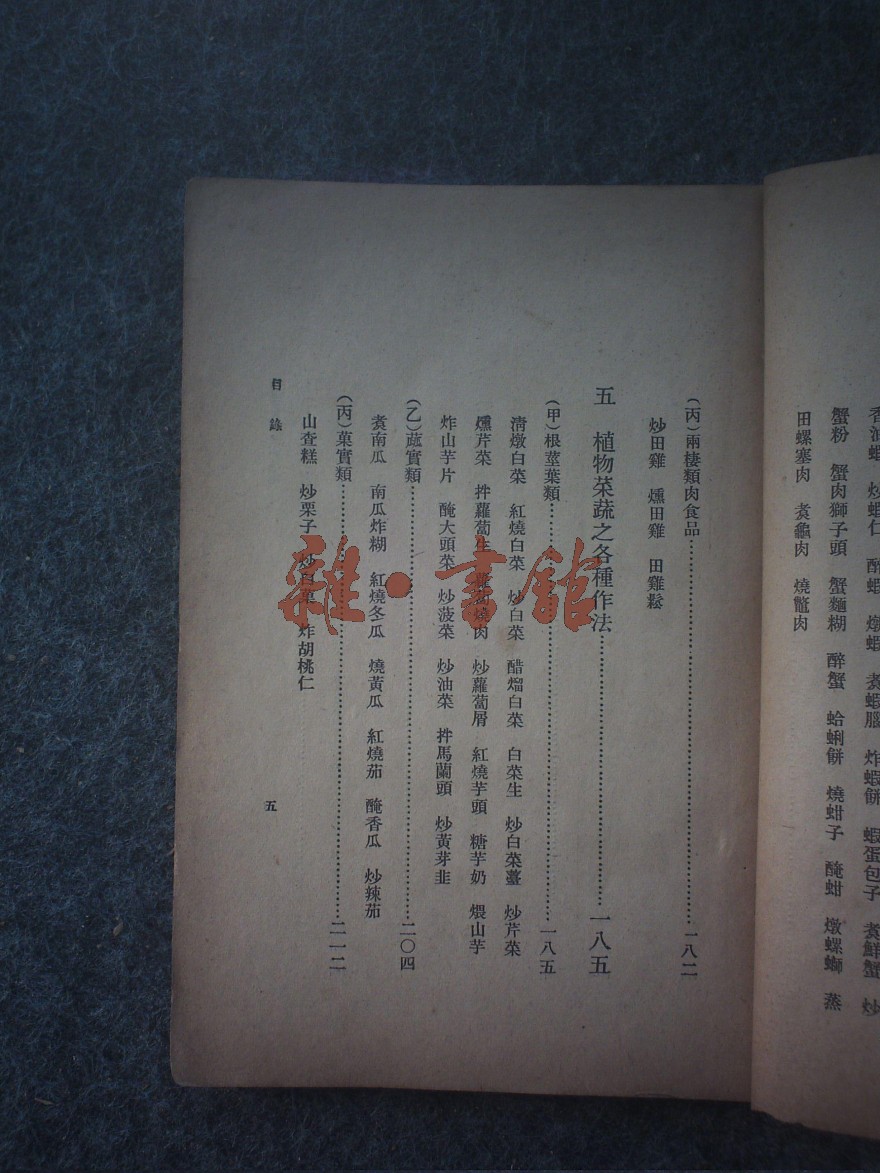 香油蝦　炒蝦仁　醉蝦　燉蝦　煑蝦腦　炸蝦餅　蝦蛋包子　煑鮮蟹　炒
蟹粉　蟹肉獅子頭　蟹麵糊　醉蟹　蛤蜊餅　燒蚶子　醃蚶　燉螺螄　蒸
田螺塞肉　煑龜肉　燒鼈肉
（丙）兩棲類肉食品…………一八二
炒田雞　燻田雞　田雞鬆
五　植物菜蔬之各種作法…………一八五
（甲）根莖葉類…………一八五
清燉白菜　紅燒白菜　炒白菜　醋熘白菜　白菜生　炒白菜薹　炒芹菜
燻芹菜　拌蘿蔔生　蘿蔔燒肉　炒蘿蔔屑　紅燒芋頭　糖芋奶　煨山芋
炸山芋片　醃大頭菜　炒菠菜　炒油菜　拌馬蘭頭　炒黃芽韭
（乙）蔬實類…………二〇四
煑南瓜　南瓜炸糊　紅燒冬瓜　燒黃瓜　紅燒茄　醃香瓜　炒辣茄
（丙）菓實類…………二一二
山查糕　炒栗子　炒白菓　炸胡桃仁
目錄
五
雜·書館